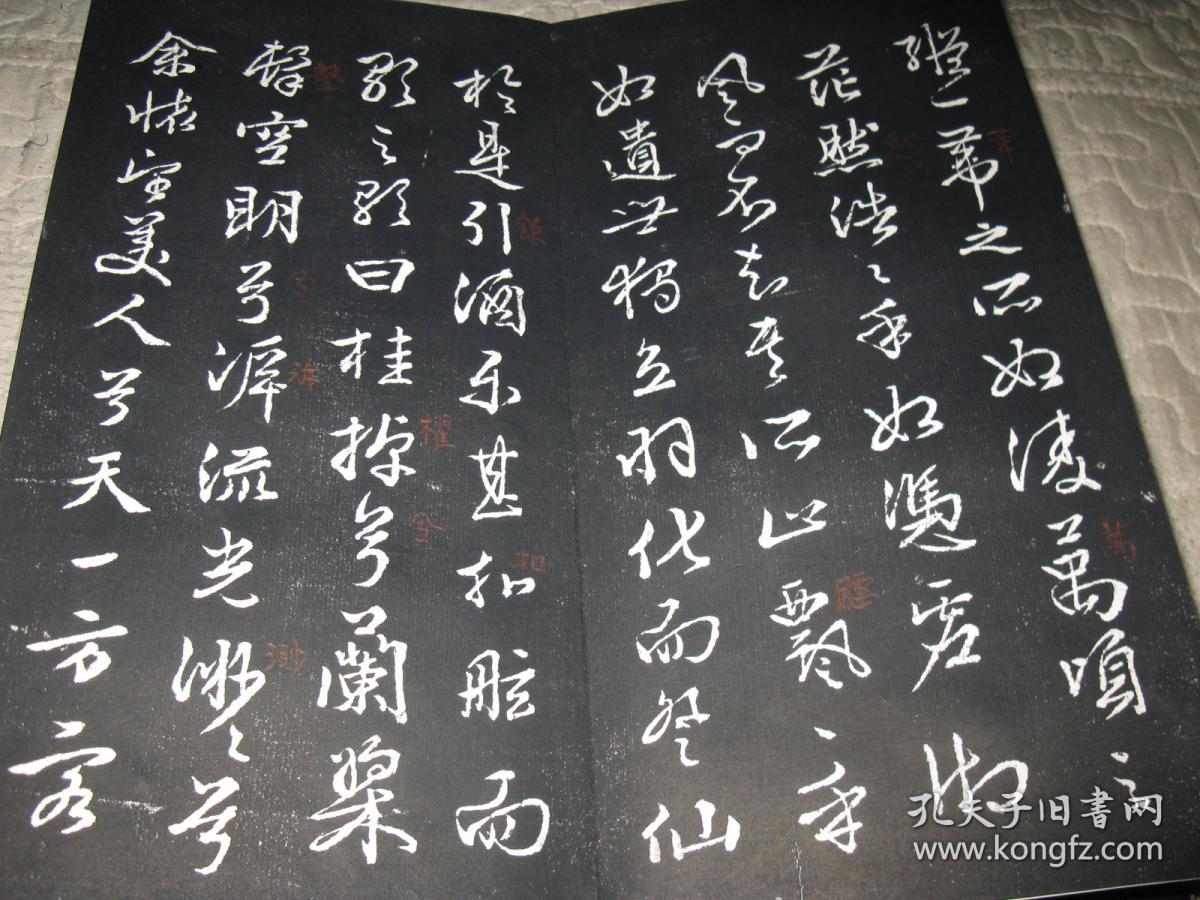 縱一葦之所如凌萬頃之
茫然浩浩乎如憑虛御
風而不知其所止飄飄乎
如遺世獨立羽化而登仙
於是引酒樂甚扣舷而
歌之歌曰桂棹兮蘭槳
擊空明兮泝流光渺渺兮
余懷望美人兮天一方客
葦
萬
扣
櫂
兮
擊
兮
泝
渺
孔夫子旧書网
www.kongfz.com